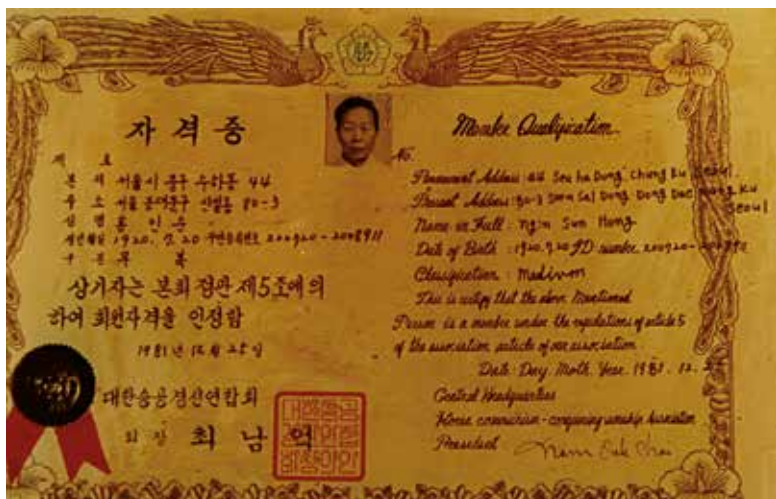 勝
자격증
제 호
본 적 서울시 중구 수하동 44
주 소 서울 동대문구 신설동 80-3
성 명 홍 인 순
생년월일 1920. 7. 20 주민등록번호 200720-
구 분 무 복
상기자는 본회 정관 제5조에 의
하여 회원자격을 인정함
1981년 12월 25일
대한승공경신연합회
회 장 최 남 억
Membe Qualification
No.
Permanent Address: 44 Sou ha Dong Chung Ku Seoul
Present Address: 80-3 Sin Sal Dong Dong Dae Mung Ku
Seoul
Name in Full : Sun Hong
Date of Birth : 1920.7.20 ID number 200720-
Classification : Medium
This is certify that the above Mentioned
Person is a member under the regulations of article 5
of the association article of our association
Date: Day, Moth, Year, 1981. 12.
Central Headquarters
Korea communism-conquering worship Association
President